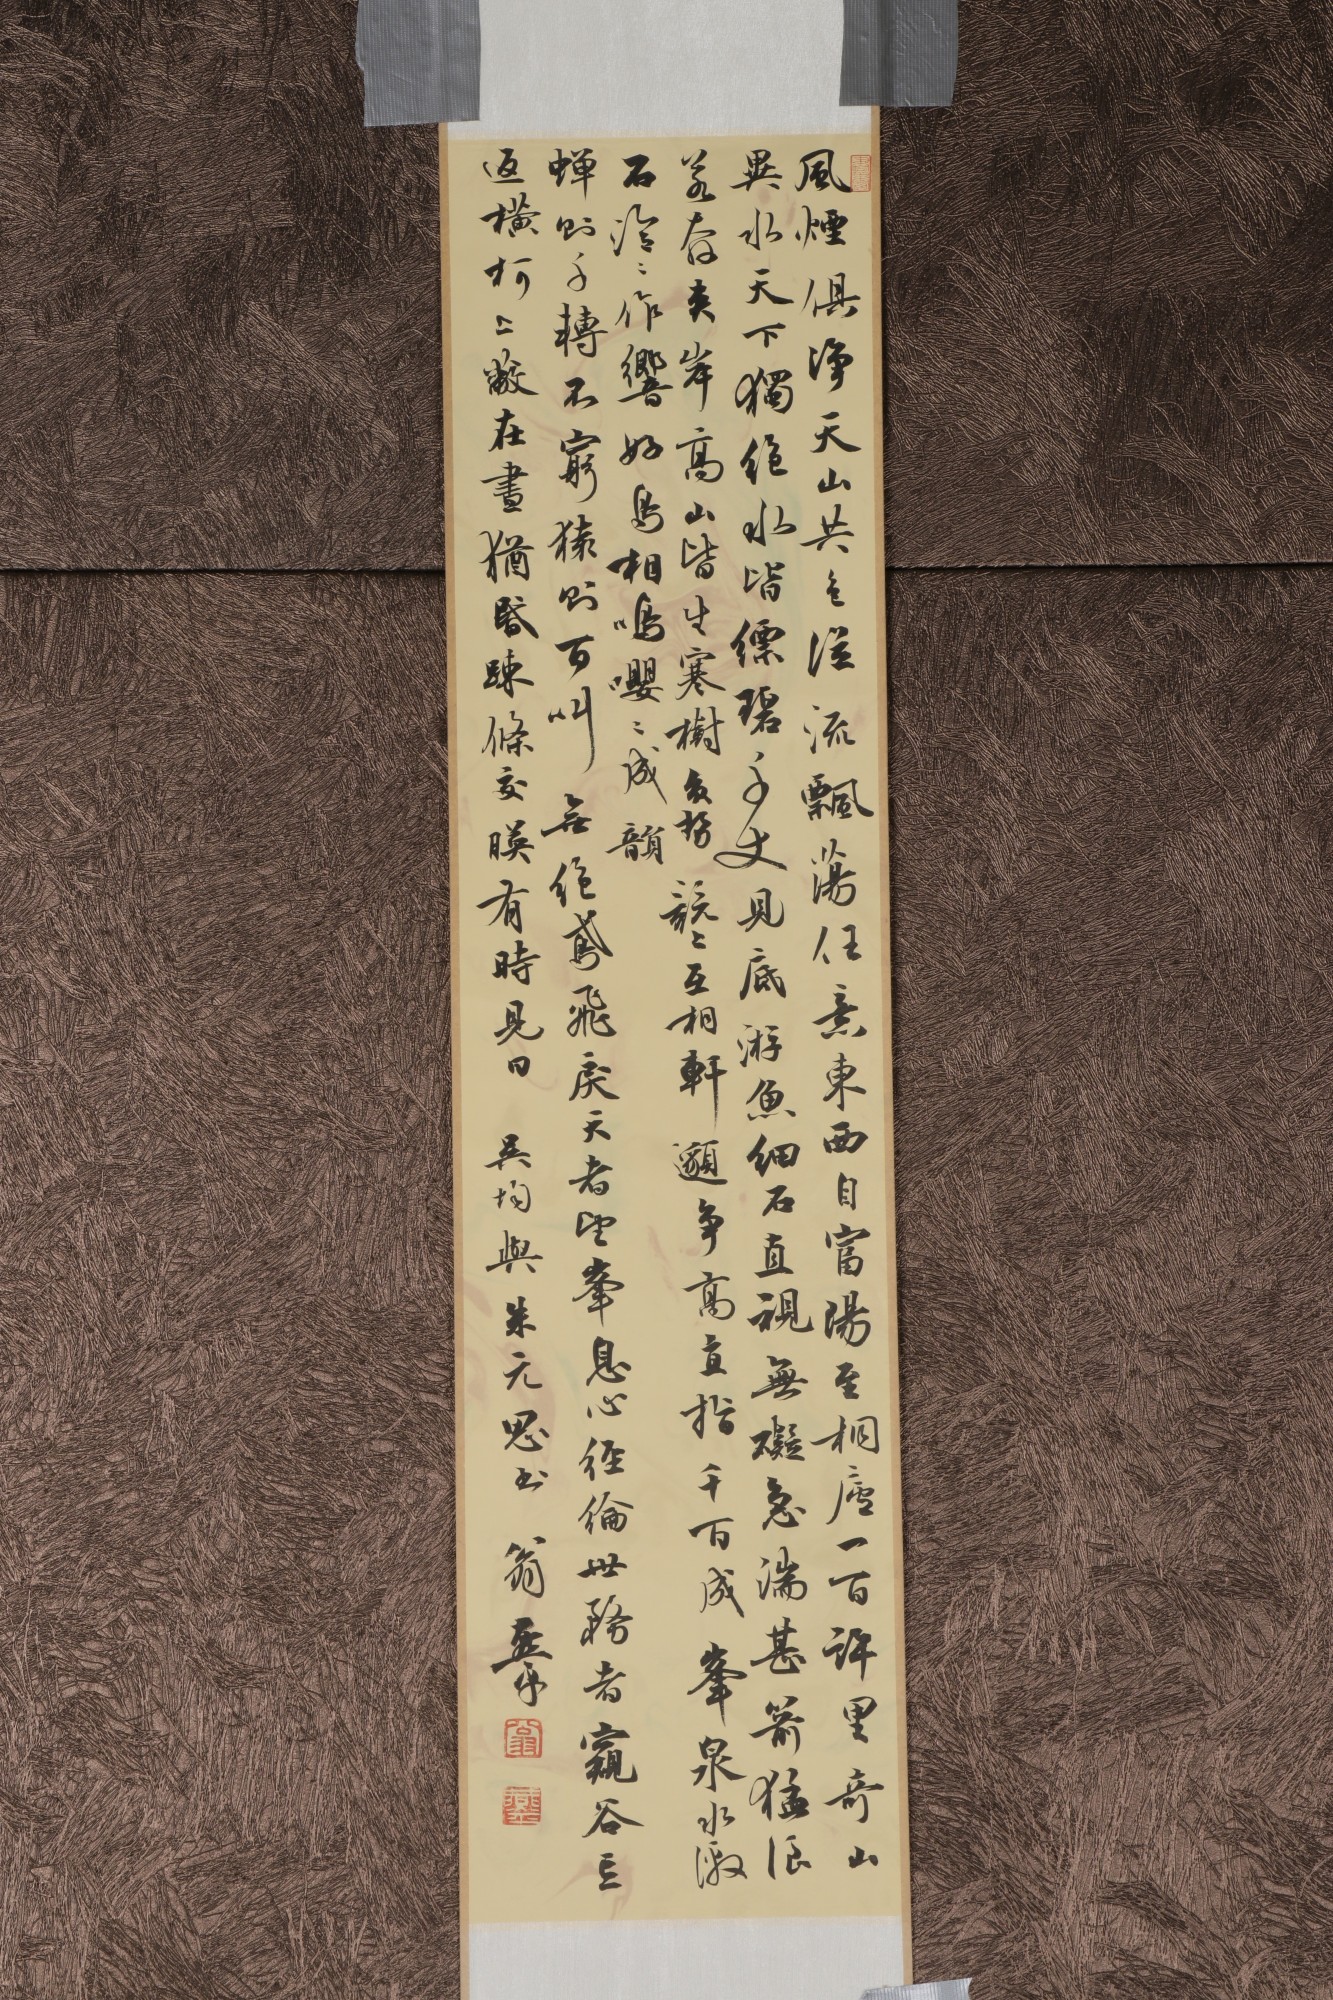 風煙俱淨天山共色從流飄蕩任意東西自富陽至桐廬一百許里奇山
異水天下獨絕水皆縹碧千丈見底游魚細石直視無礙急湍甚箭猛浪
若奔夾岸高山皆生寒樹負勢競上互相軒邈爭高直指千百成峯泉水激
石泠〻作響好鳥相鳴嚶〻成韻
蟬則千轉不窮猿則百叫無絕鳶飛戾天者望峯息心經綸世務者窺谷忘
返橫柯上蔽在晝猶昏疎條交映有時見日 吳均與朱元思書 翁